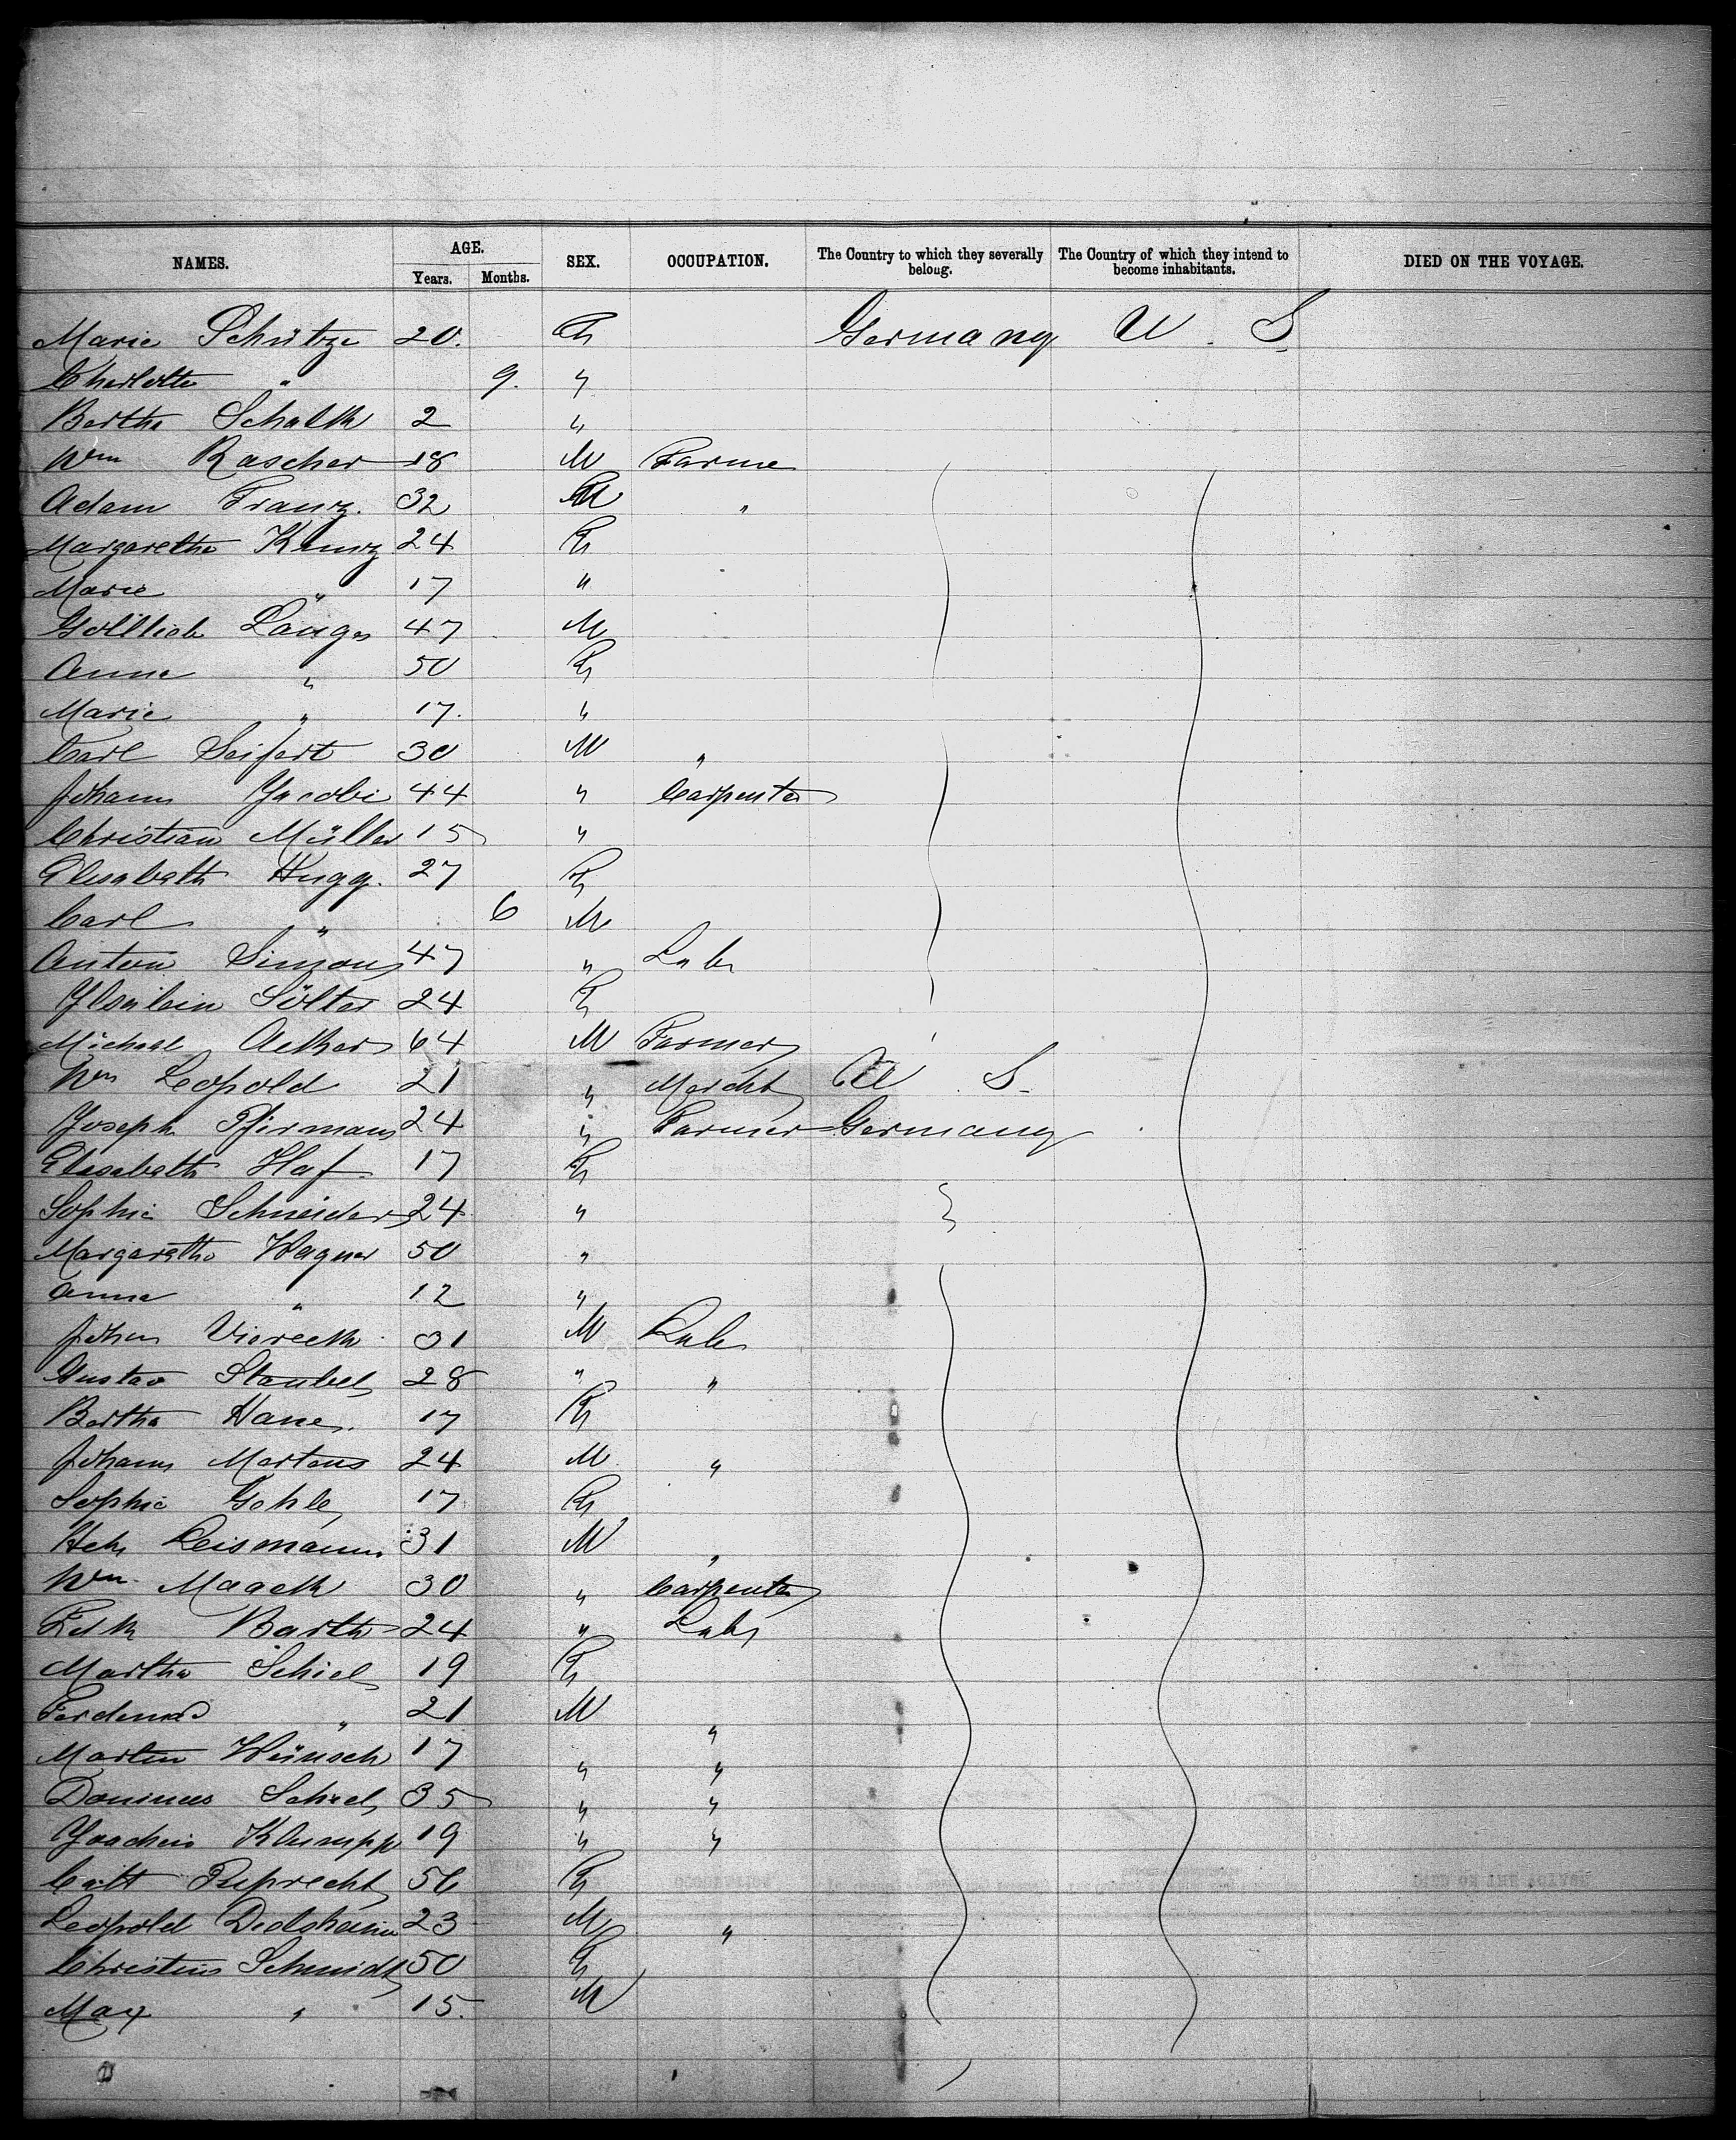 NAMES. AGE. SEX. OCCUPATION. The Country to which they severally beloug. The Country of which they intend to become inhabitants. DIED ON THE VOYAGE.
Years. Months.
Marie Schütze 20. F Germany U. S.
Charlotte " 9. "
Bertha Schalk 2 "
Wm Rascher 18 M Farme
Adam Franz. 32 M "
Margaretha Kunz 24 F
Marie " 17 "
Gottlieb Langer 47 M
Anna " 50 F
Marie " 17. "
Carl Seifert 30 M "
Johann Jacobi 44 " Carpenter
Christian Müller 15 "
Elisabeth Hugg. 27 F
Carl " 6 M
Anton Simons 47 " Labr
Sölter 24 F
Michael 64 M Farmer
Wm Leopold 21 " Mercht U. S.
Joseph Pfirmann 24 " Farmer Germany
Elisabeth Haf 17 F
Sophie Schneider 24 "
Margaretha Wagner 50 "
Anna " 12 "
Johan Viereck 31 M Labr
Gustav Staubel 28 " "
Bertha Hane. 17 F
Johann Martens 24 M "
Sophie Gohle 17 F
Hch Leismann 31 M "
Wm. Maack 30 " Carpenter
Fdk Barth 24 " Labr
Martha Schiel 19 F
Ferdinand " 21 M "
Martin Wünsch 17 " "
Schiel 35 " "
Joachim Klumpp 19 " "
Ruprecht 56 F
Leopold 23 M "
Christine Schmidt 50 F
Max " 15. M